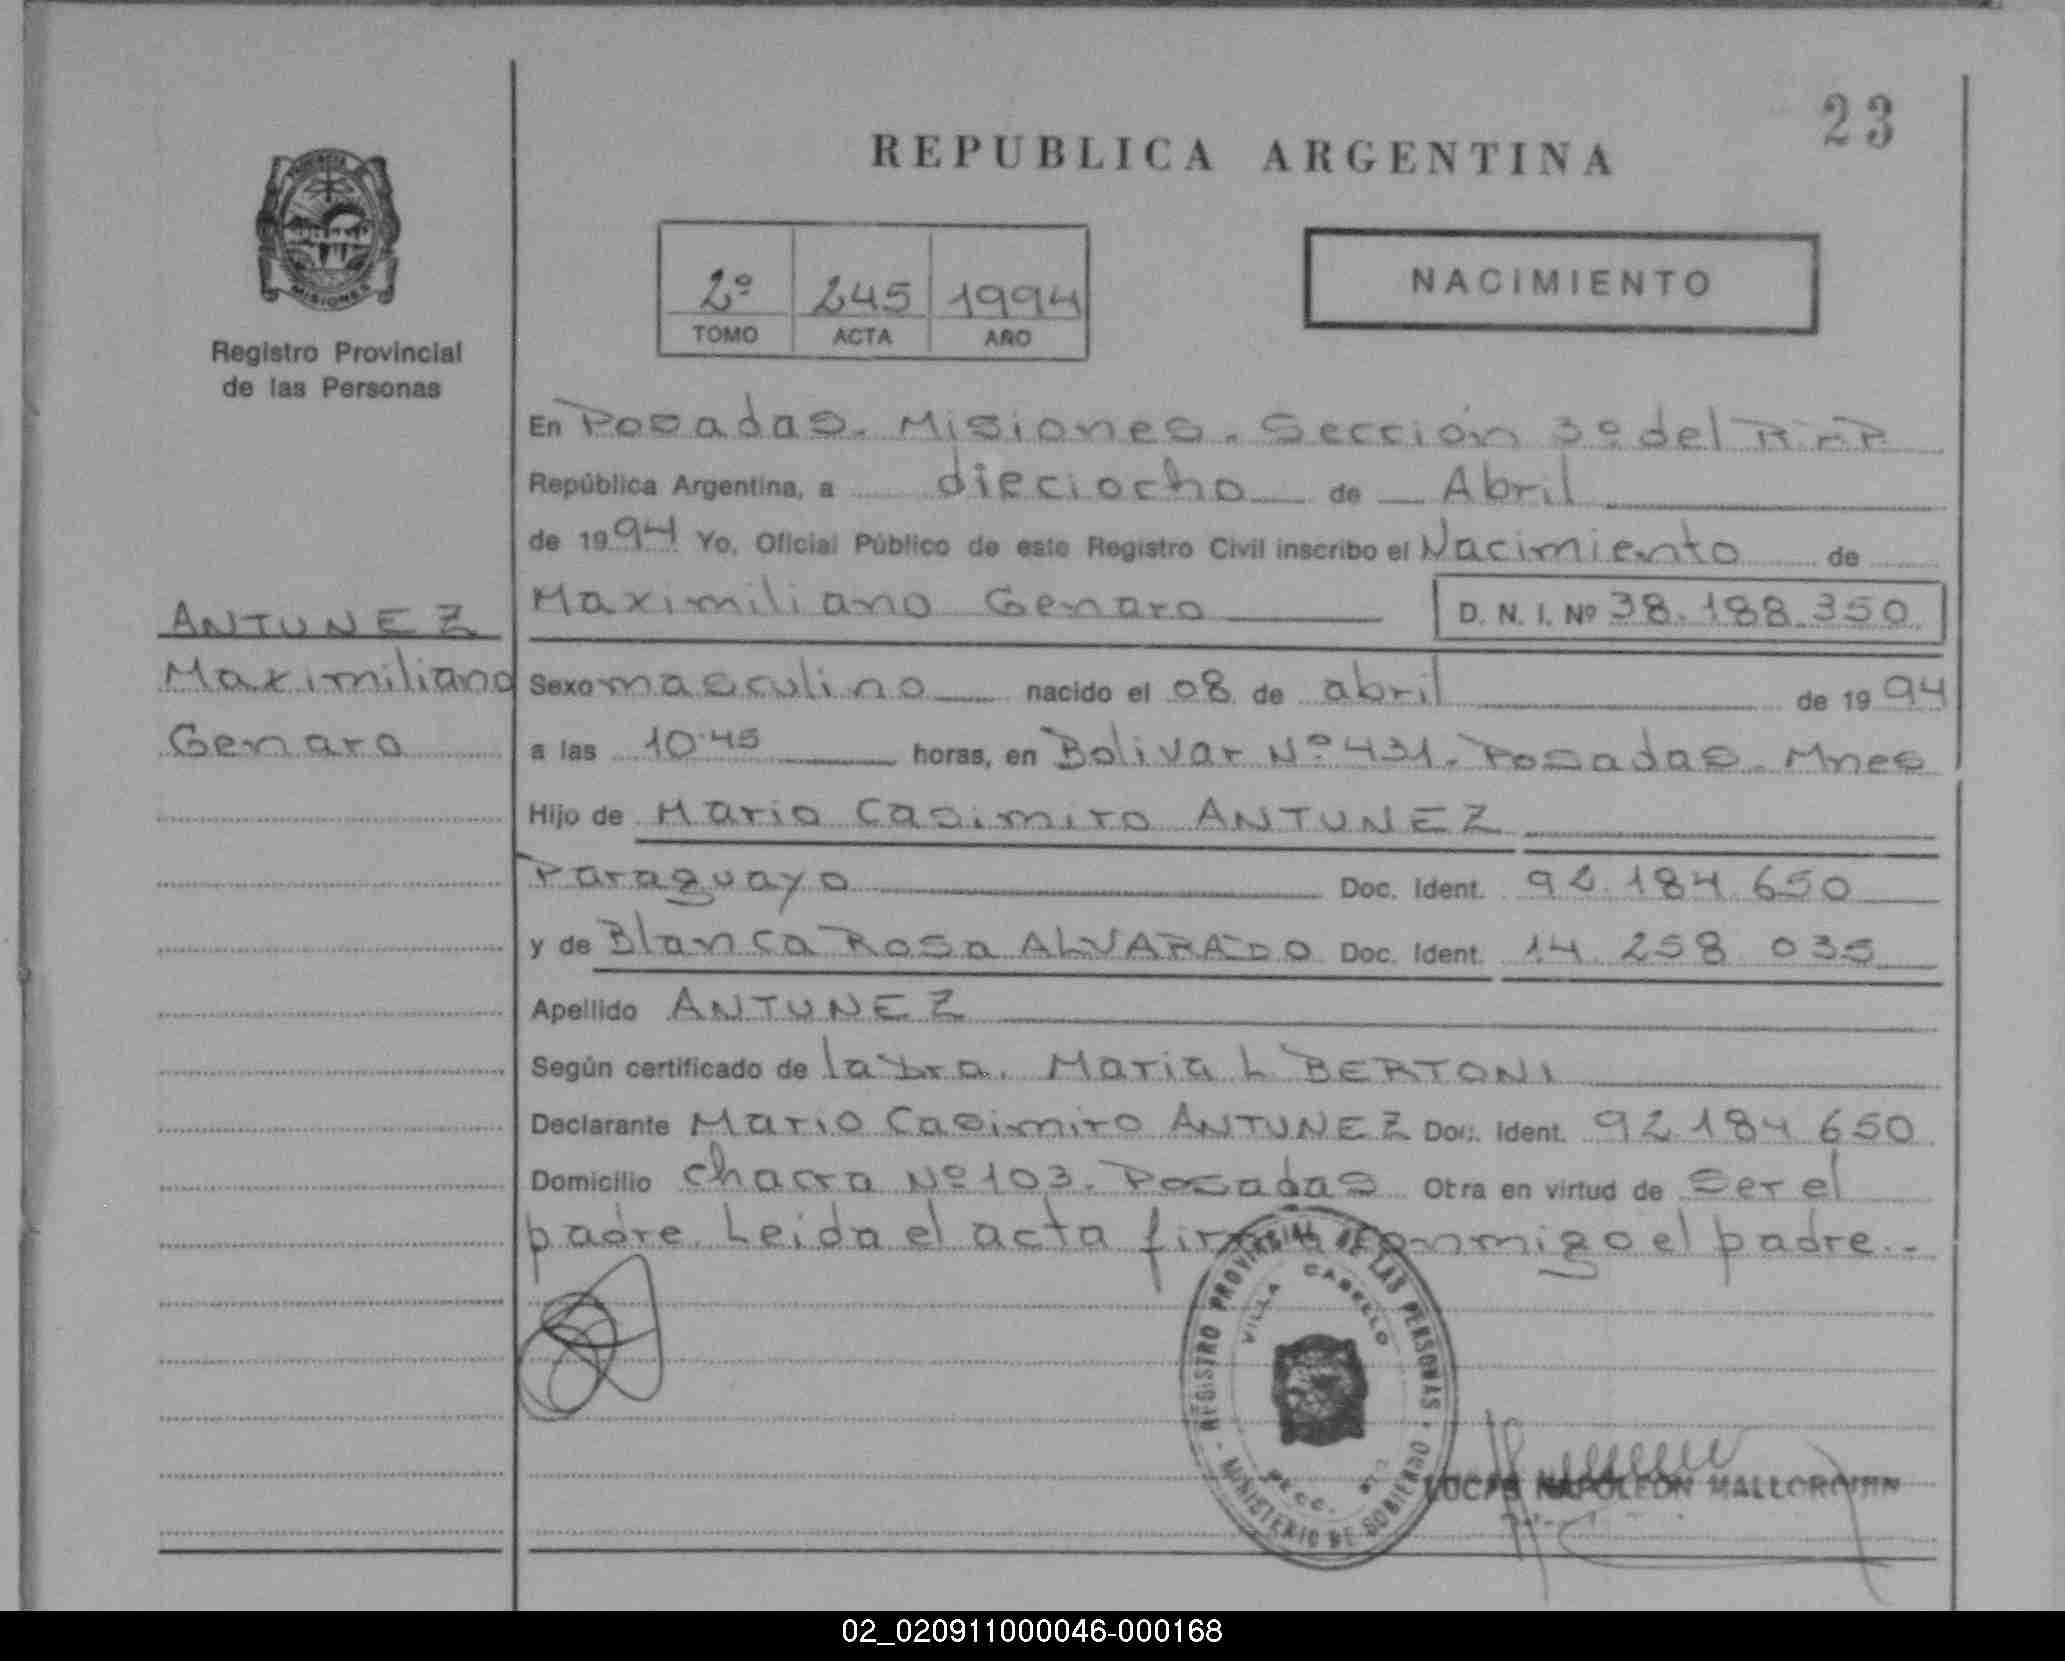 23
REPUBLICA ARGENTINA
MISIONES
Registro Provincial
de las Personas
2º 245 1994
TOMO ACTA AÑO
NACIMIENTO
En Posadas. Misiones. Sección 3º del R.P.P
República Argentina, a dieciocho de Abril
de 1994 Yo, Oficial Público de este Registro Civil inscribo el Nacimiento de
Maximiliano Genaro D. N. I. Nº 38.188.350.
ANTUNEZ
Maximiliano
Genaro
Sexo masculino nacido el 08 de abril de 1994
a las 10.45 horas, en Bolivar Nº 431. Posadas. Mnes
Hijo de Mario Casimiro ANTUNEZ
Paraguayo Doc. Ident. 92.184.650
y de Blanca Rosa ALVARADO Doc. Ident. 14.258.035
Apellido ANTUNEZ
Según certificado de la Dra. Maria L BERTONI
Declarante Mario Casimiro ANTUNEZ Doc. Ident. 92.184.650
Domicilio chacra Nº 103. Posadas Otra en virtud de Ser el
padre. Leida el acta firma conmigo el padre.-
REGISTRO PROVINCIAL DE LAS PERSONAS
VILLA CABELLO
SECC.
MINISTERIO DE GOBIERNO
LUCAS NAPOLEON MALLORQUIN
02_020911000046-000168